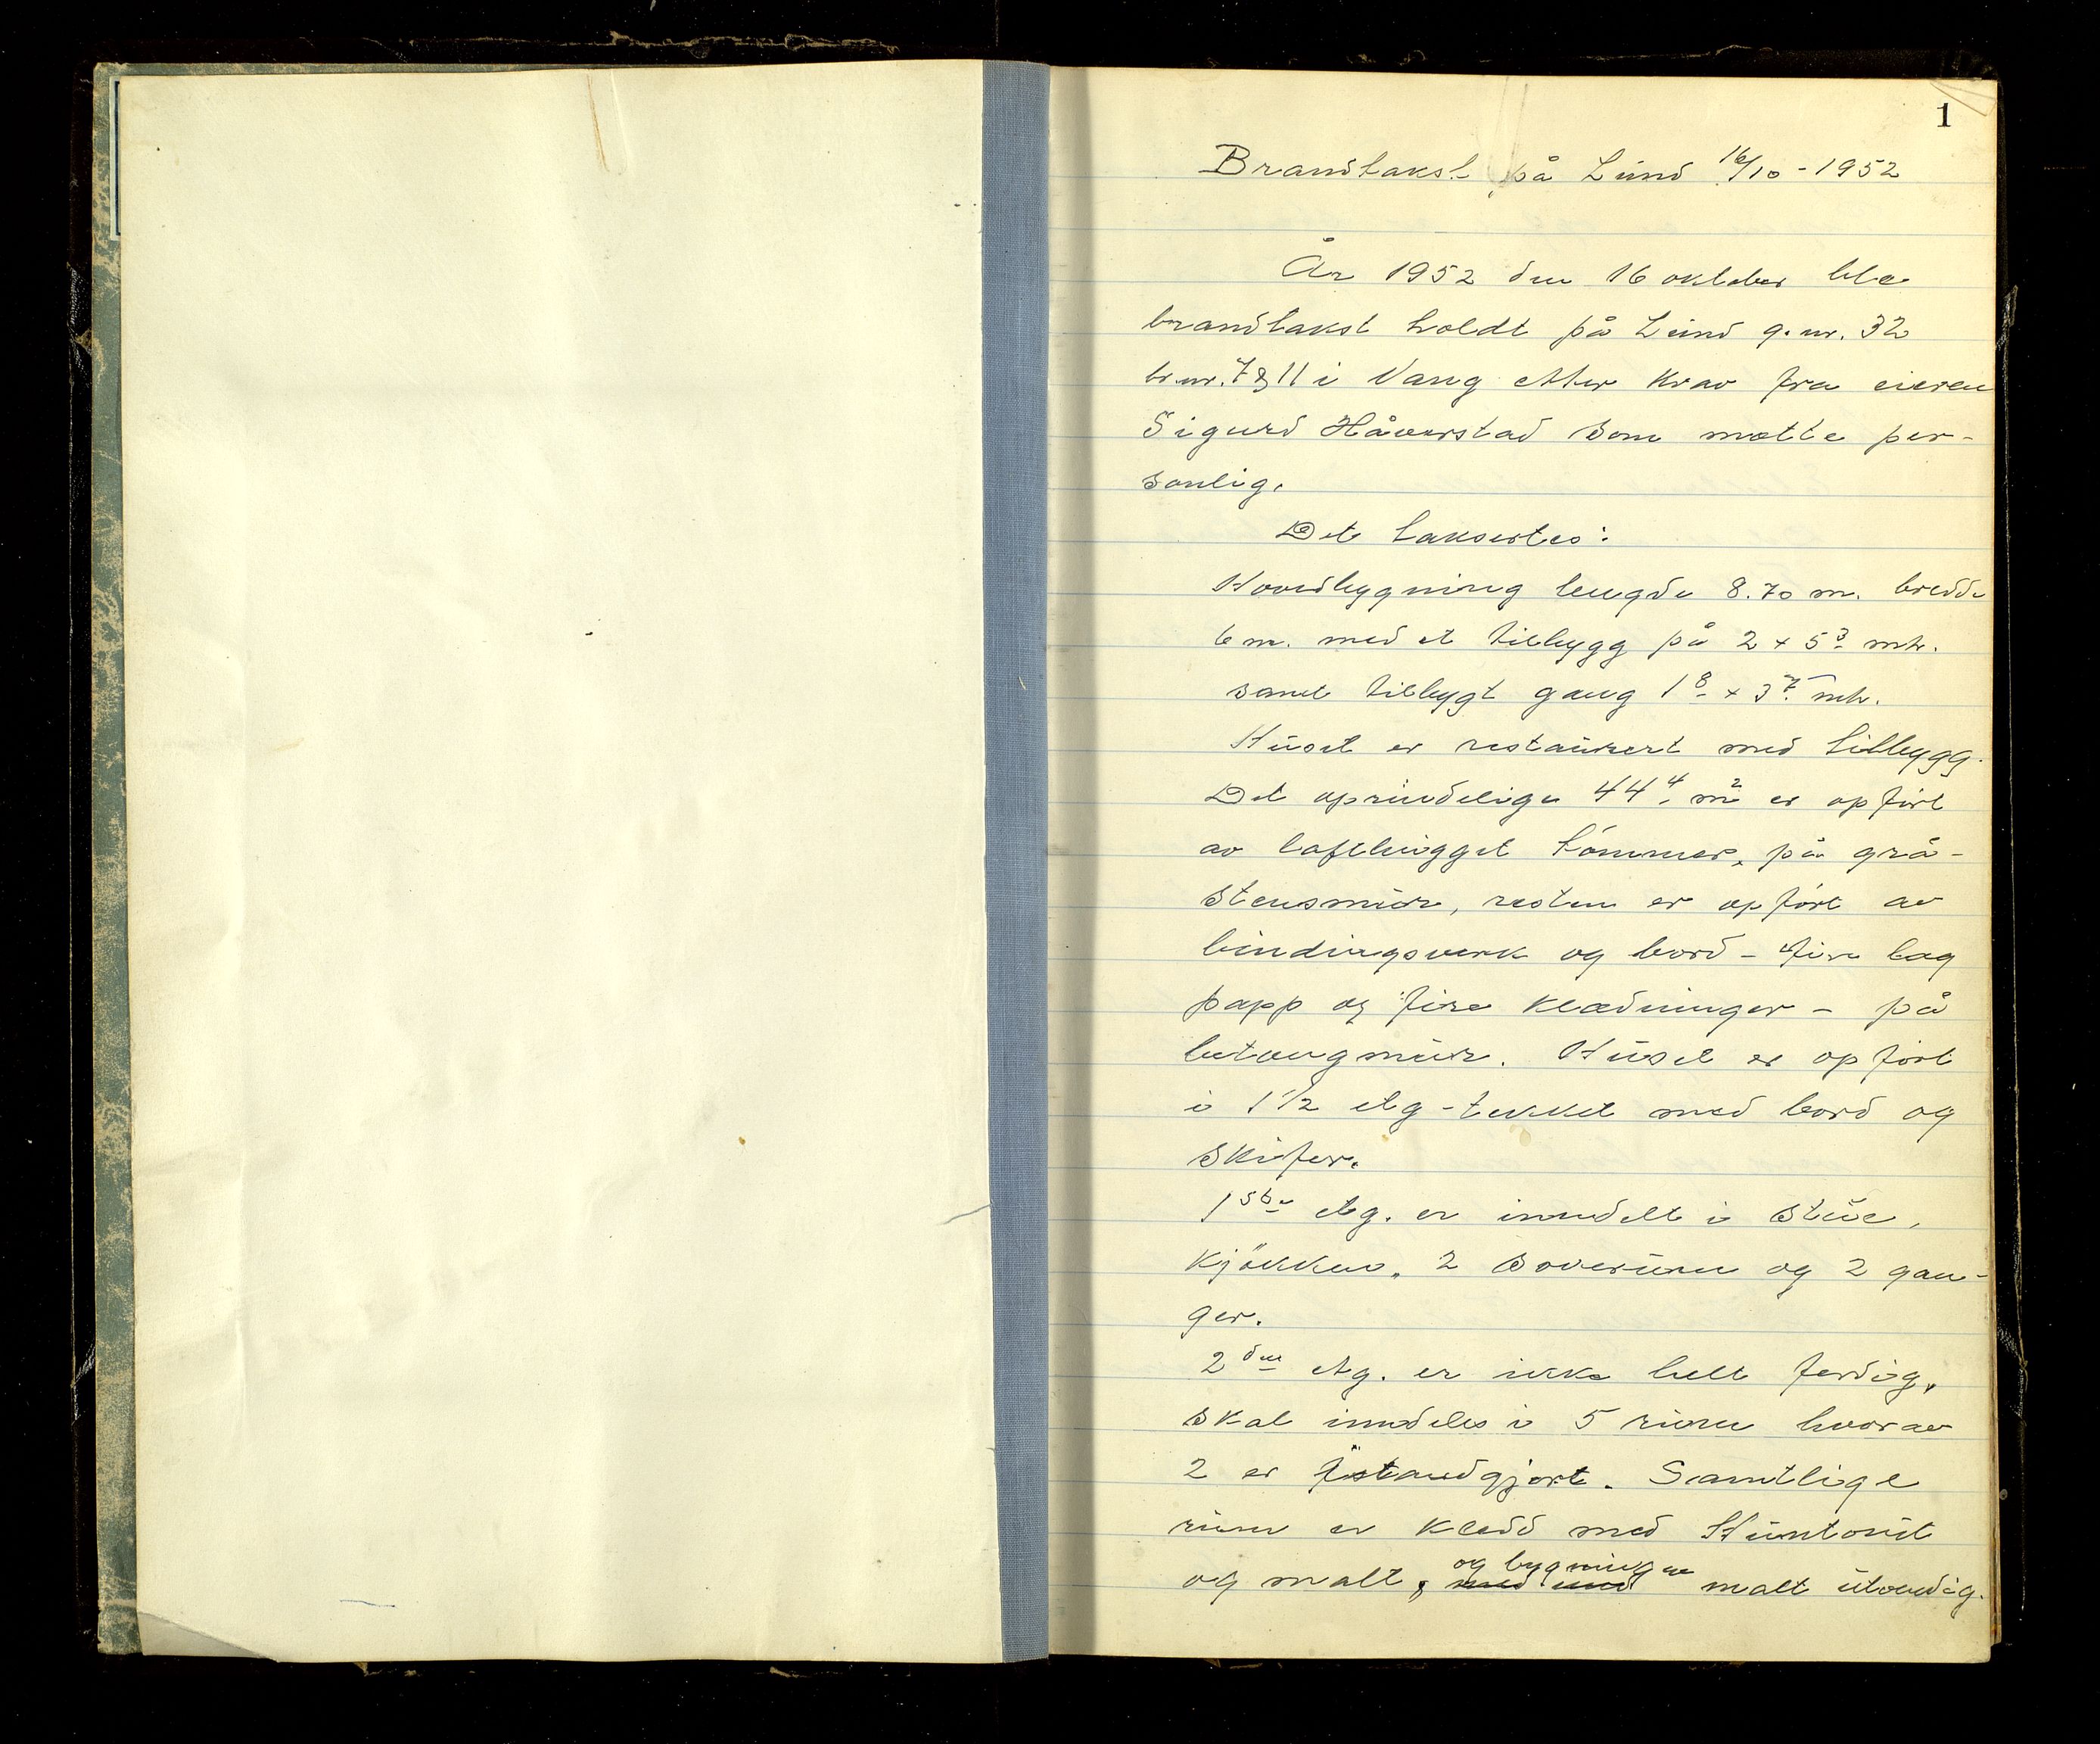 1
Brandtakst på Lund 16/10 - 1952
År 1952 den 16 oktober ble
brandtakst holdt på Lund g.nr. 32
br.nr. 7 & 11 i Vang etter krav fra eieren
Sigurd Håverstad som møtte per-
sonlig.
Det taksertes:
Hovedbygning lengde 8.70 m. bredde
6 m. med et tilbygg på 2 x 5³ mtr.
samt tilbygt gang 1⁸ x 3⁷ mtr.
Huset er restaurert med tilbygg.
Det oprindelige 44⁴ m² er opført
av lafthugget tömmer, på grå-
stensmur, resten er opført av
bindingsverk og bord - fire lag
papp og fire klædninger - på
betongmur. Huset er opført
i 1 1/2 etg - tekket med bord og
skifer.
1ste etg. er inndelt i stue,
kjøkken, 2 soverum og 2 gan-
ger.
2den etg. er ikke helt ferdig,
skal inndeles i 5 rum hvorav
2 er istandgjort. Samtlige
rum er kledd med Huntonit
og malt, og bygningen malt utvendig.